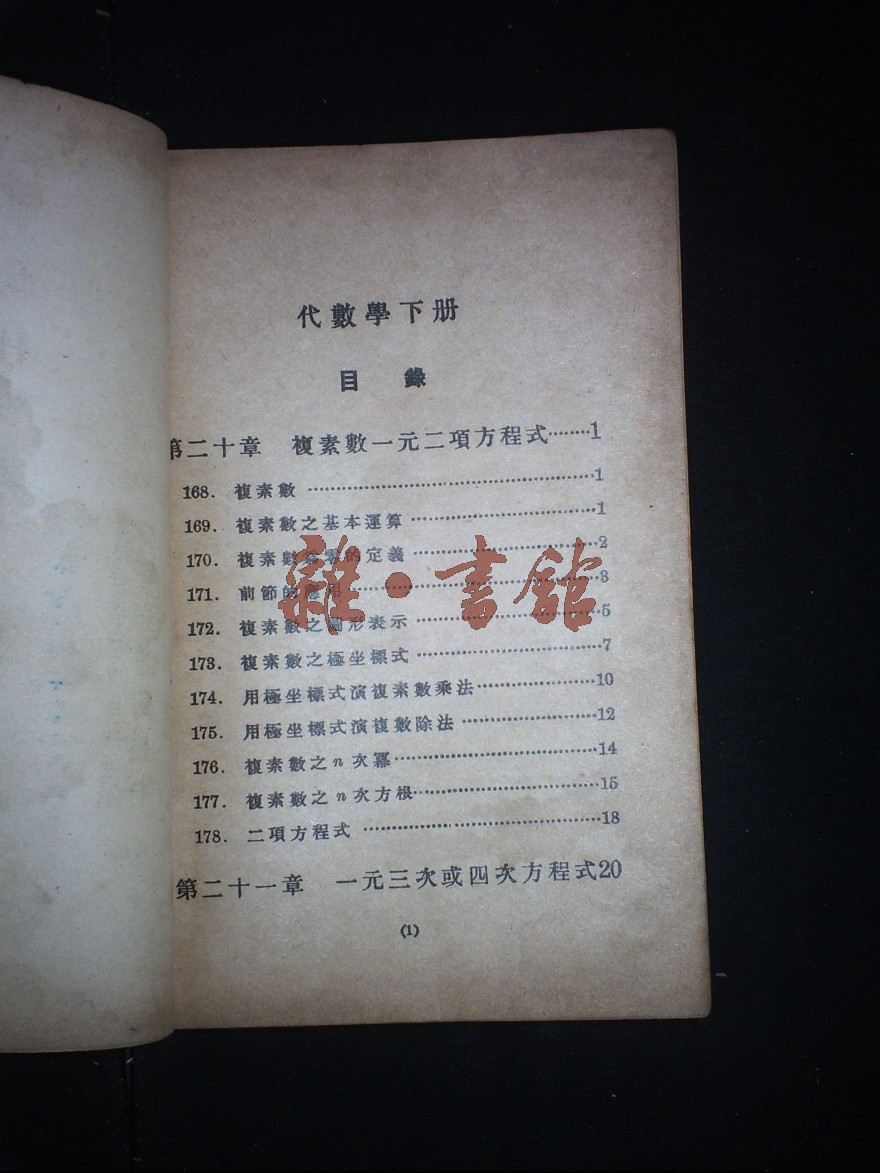 代數學下册
目錄
第二十章 複素數一元二項方程式………1
168. 複素數………1
169. 複素數之基本運算………1
170. 複素數為零的定義………2
171. 前節的應用………3
172. 複素數之圖形表示………5
173. 複素數之極坐標式………7
174. 用極坐標式演複素數乘法………10
175. 用極坐標式演複數除法………12
176. 複素數之n次冪………14
177. 複素數之n次方根………15
178. 二項方程式………18
第二十一章 一元三次或四次方程式20
(1)
雜·書館